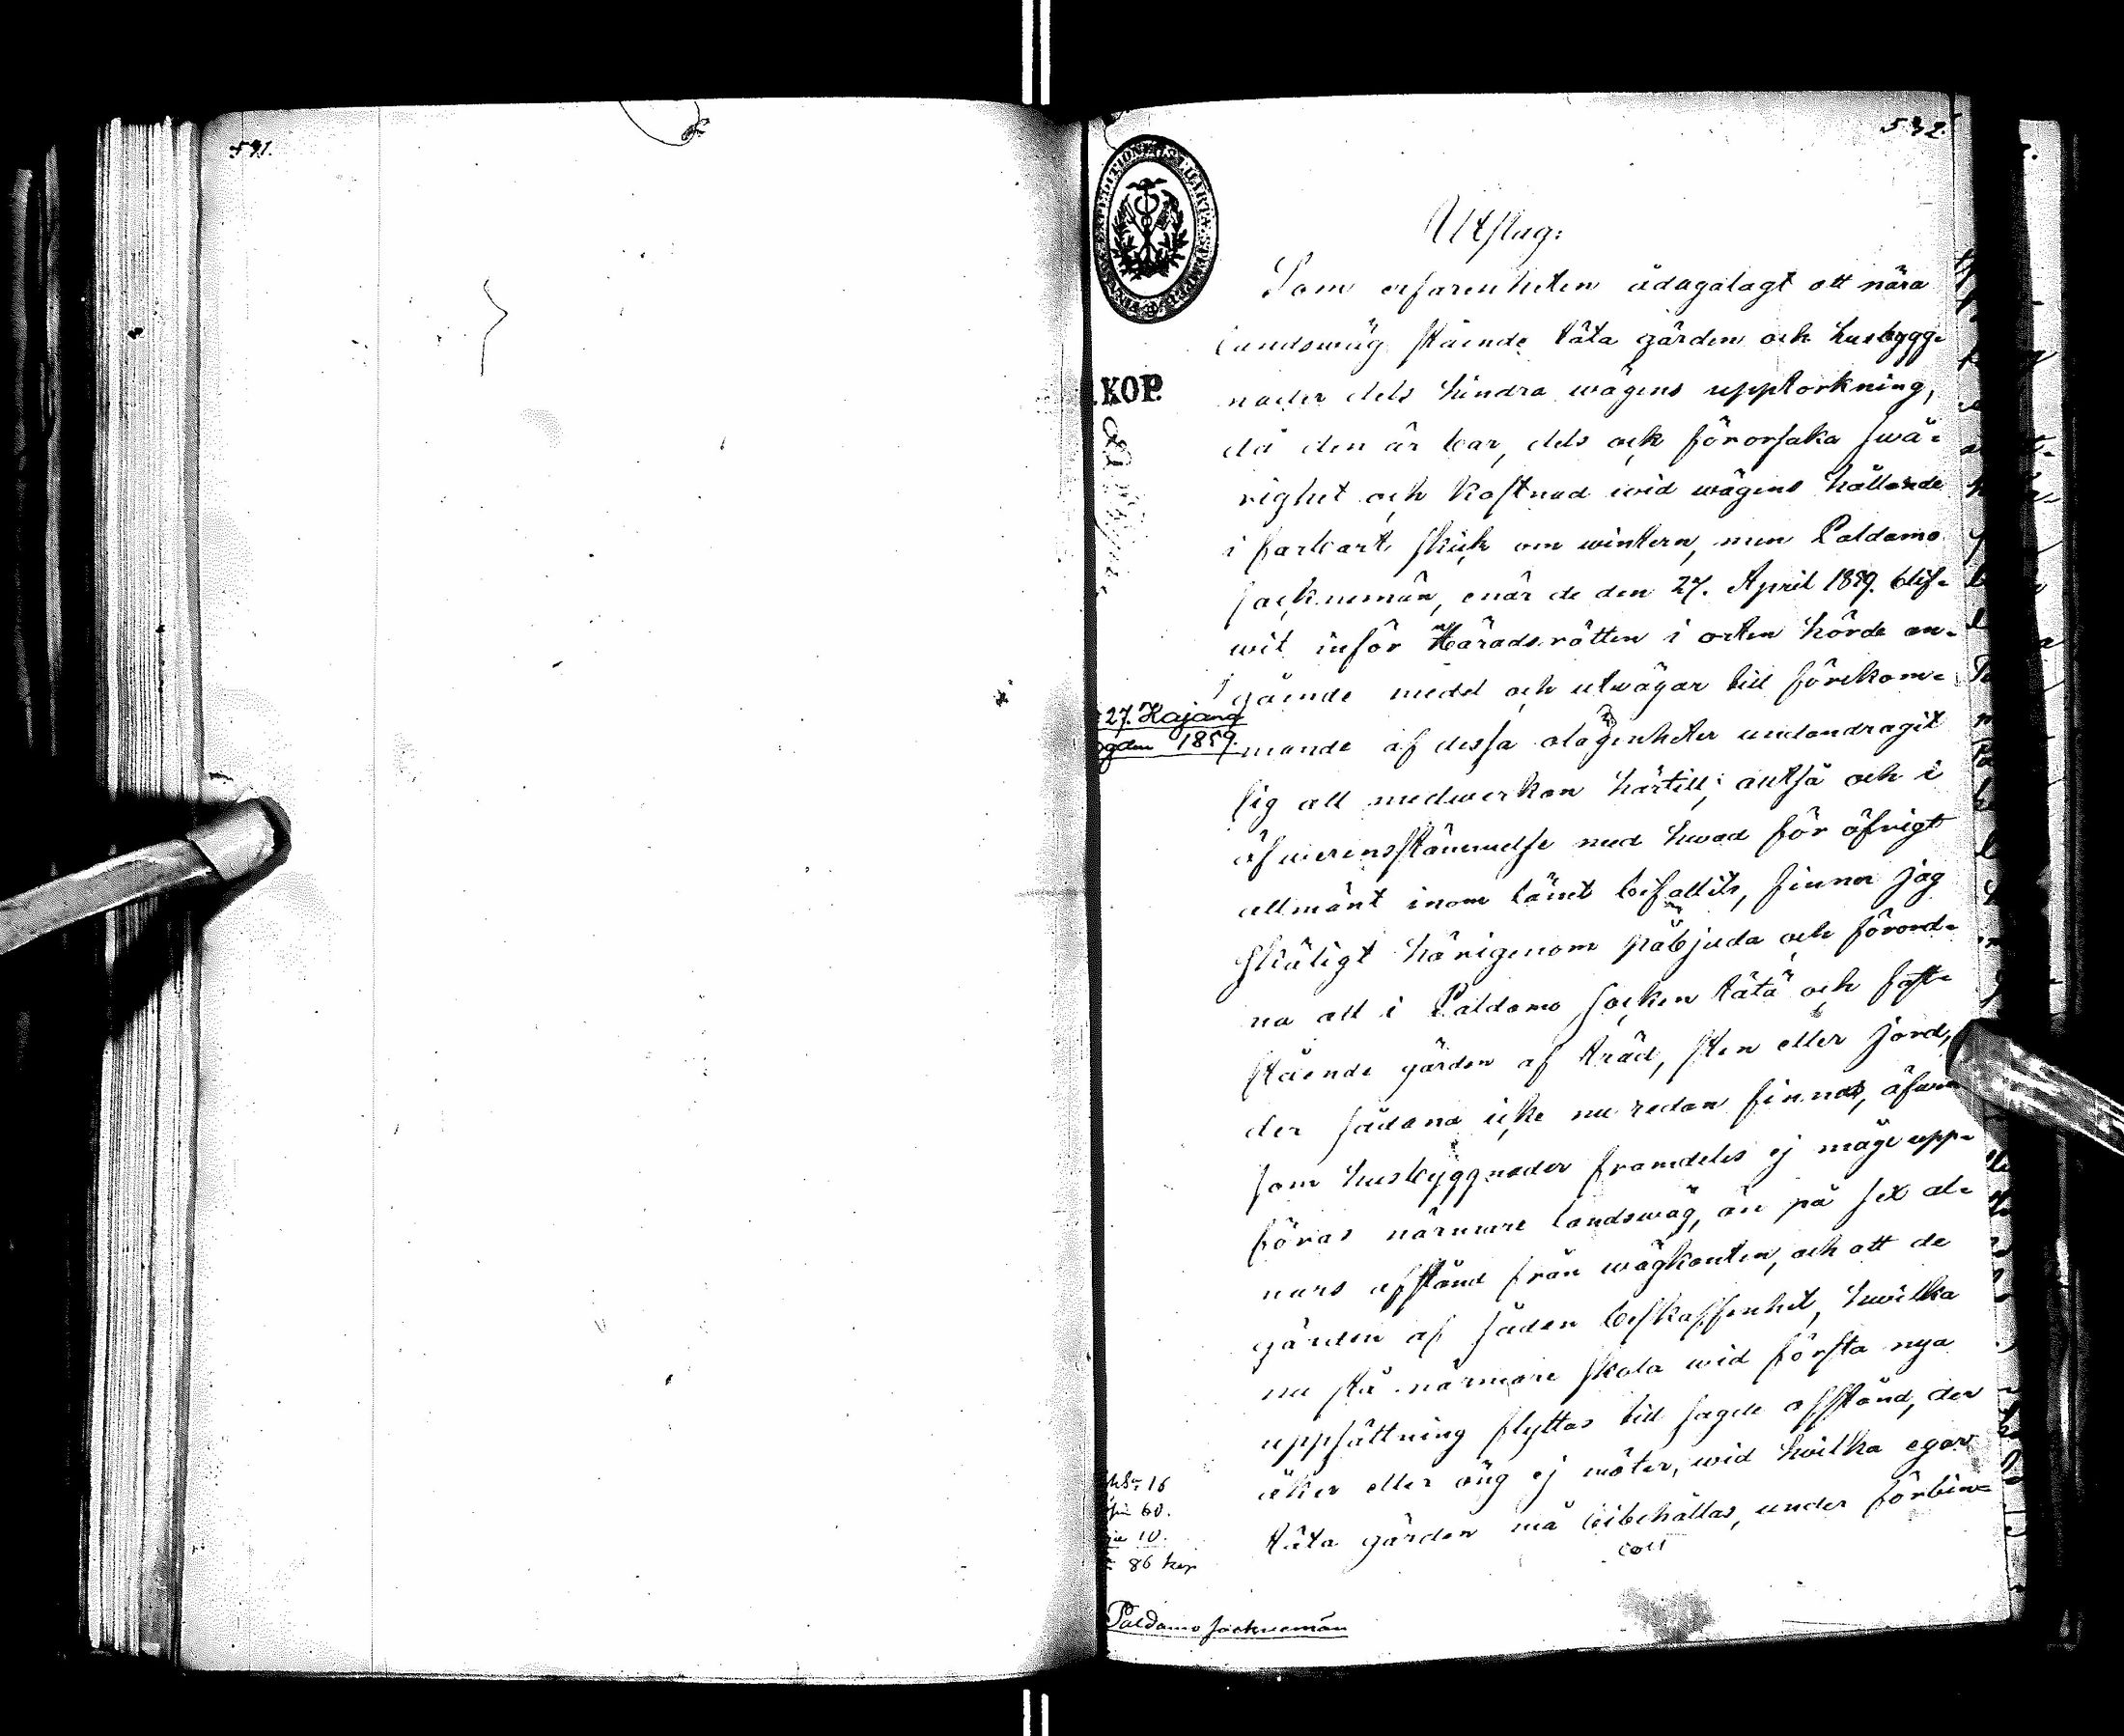 591.
592.
Utslag:
Som erfarenheten ådagalagt att nära
landswäg stående täta gärden och husbygg-
nader dels hindra wägens upptorkning,
då den är bar, dels ock förorsaka swå-
righet och kostnad wid wägens hållande
i farbart skick om wintern, men Paldamo
socknemän, enär de den 27. April 1859. blif-
wit inför Häradsrätten i orten hörde an-
gående medel och utwägar till förekom-
mande af dessa olägenheter undandragit
sig all medwerkan härtill; alltså och i
öfwerensstämmelse med hwad för öfrigt
allmänt inom länet befallits, finner jag
skäligt härigenom påbjuda och förord-
na att i Paldamo socken täta och fast-
stående gärden af träd, sten eller jord,
der sådana icke nu redan finnas, äfwen
som husbyggnader framdeles ej måge upp-
föras närmare landswäg, än på sex al-
nars afstånd från wägkanten, och att de
gärden af sådan beskaffenhet, hwilka
nu stå närmare skola wid första nya
uppsättning flyttas till sagde afstånd, der
åker eller äng ej möter, wid hwilka egor
täta gärden må bibehållas, under förbin-
coll
KOP.
27. Kajana
ogden 1859.
16
60.
10.
86 kop
Paldamo socknemän